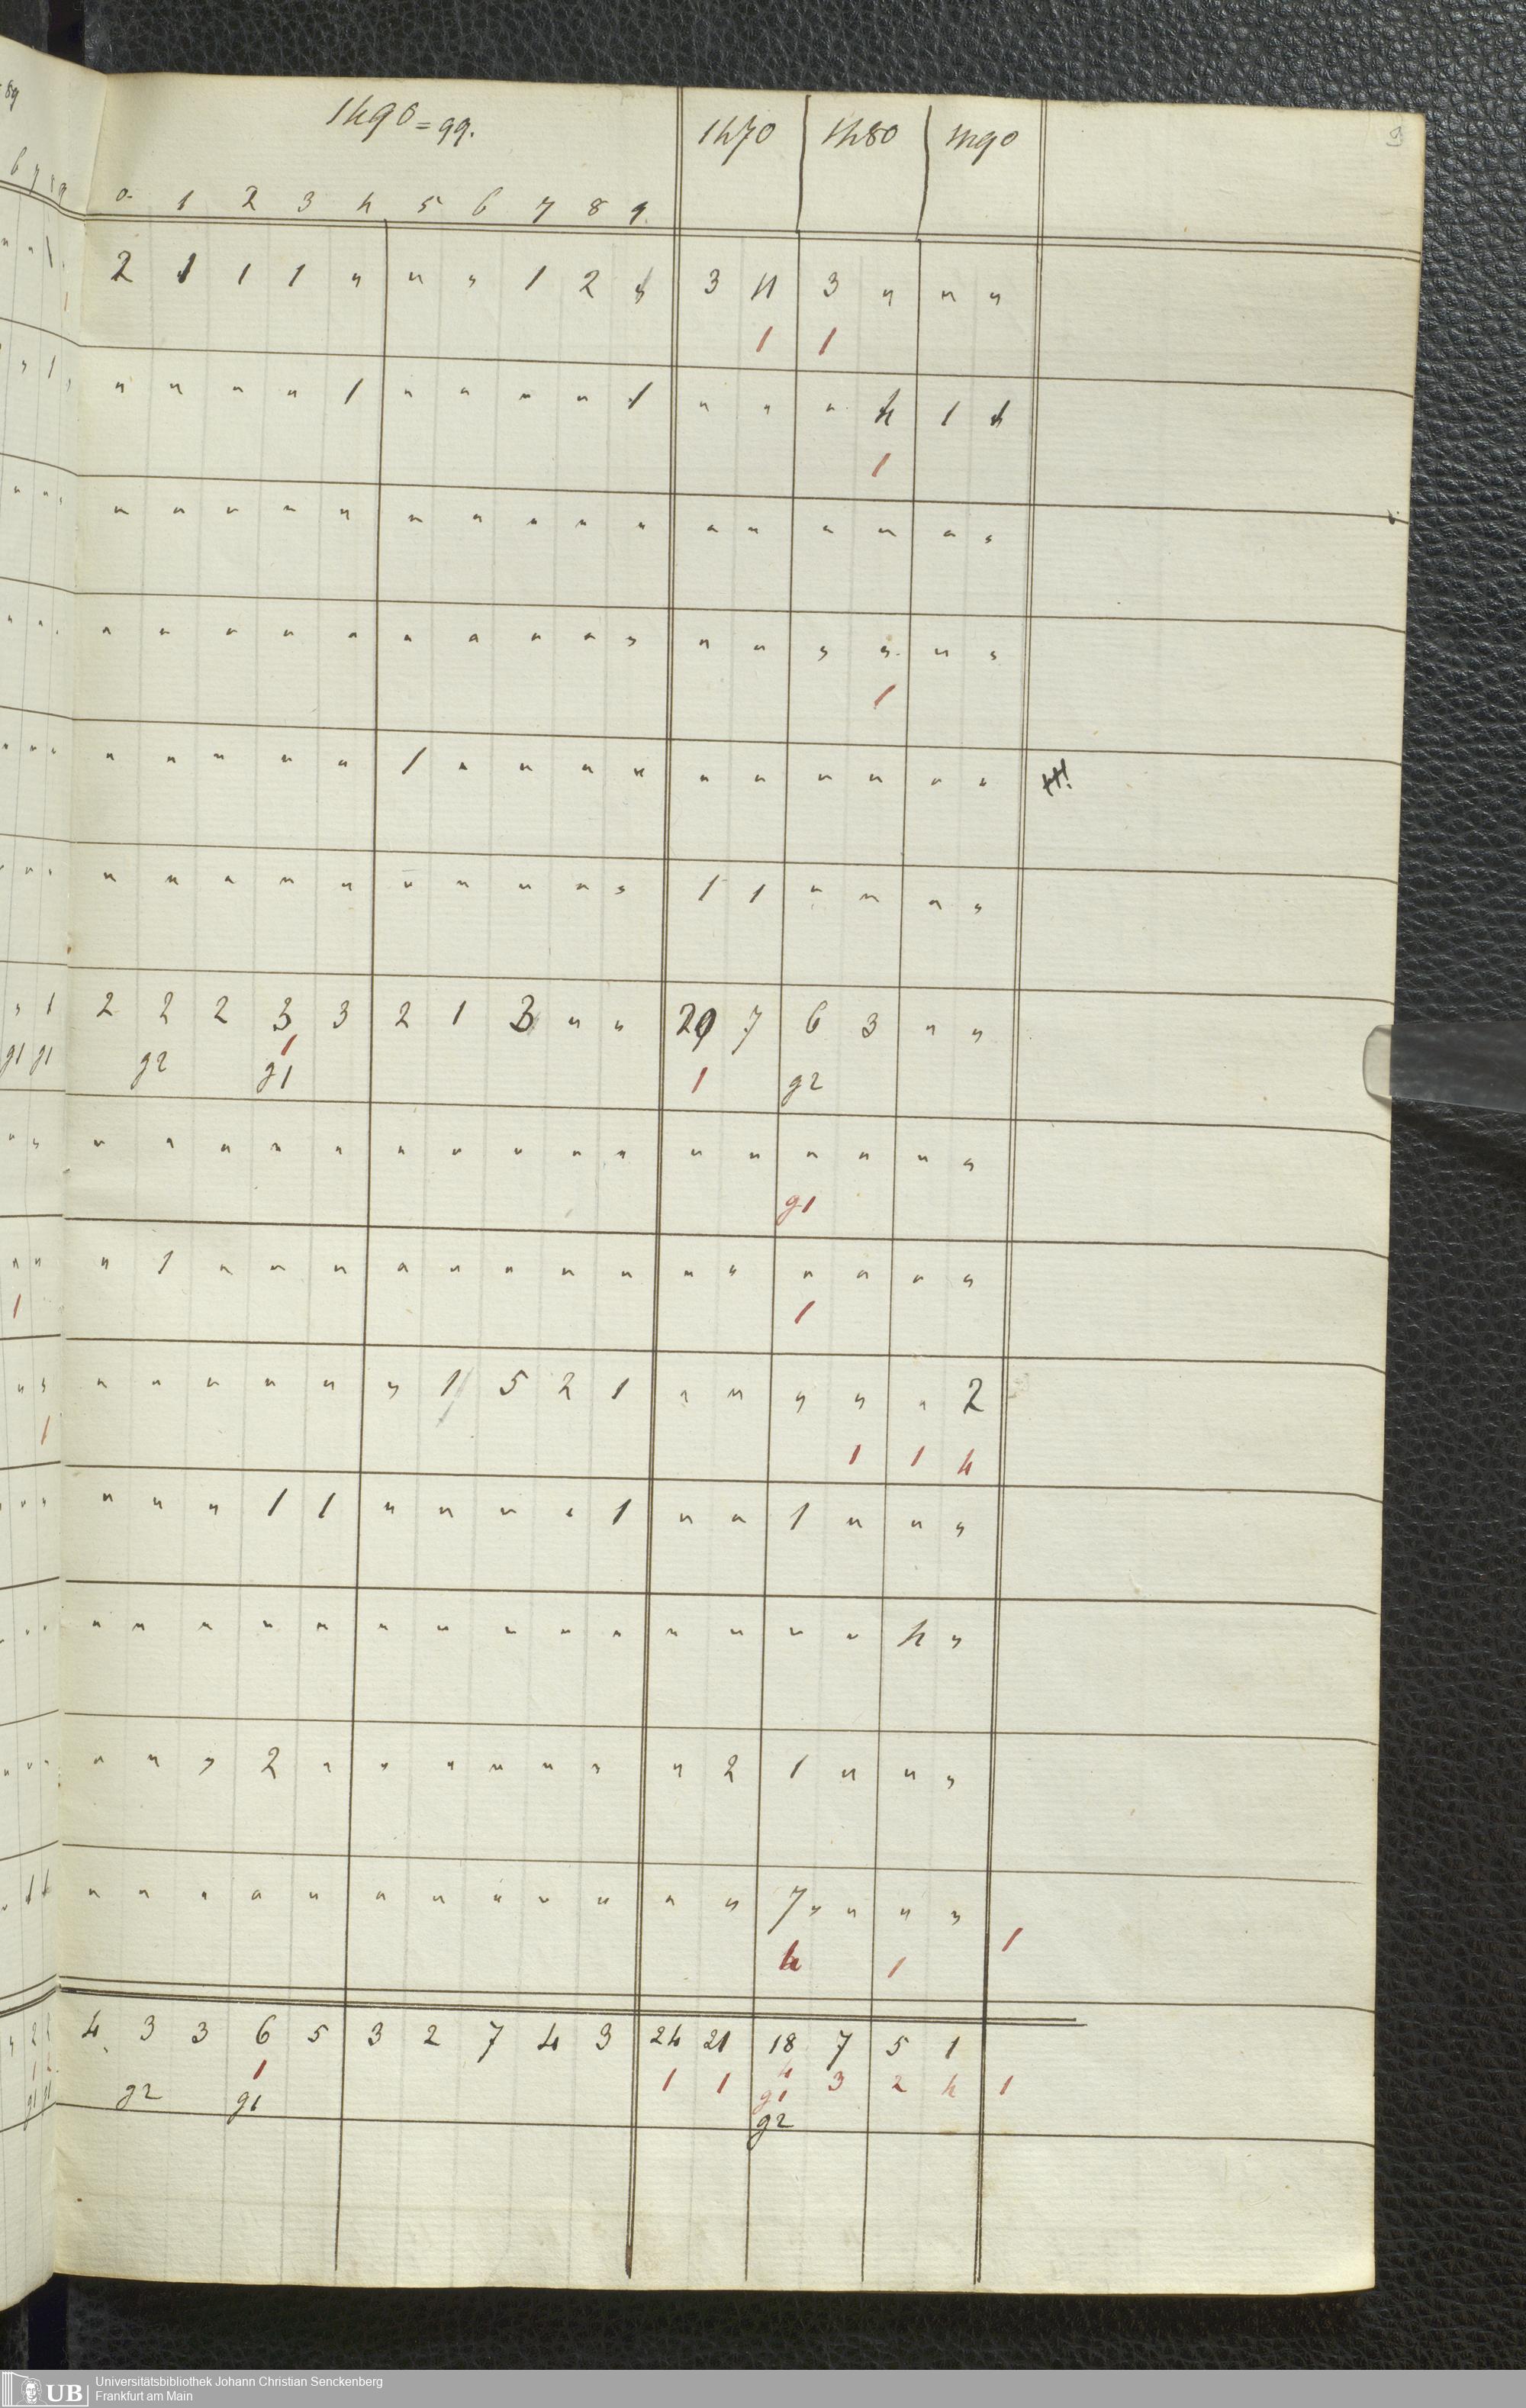 1490=99. 1470 1480 1490 9
0 1 2 3 4 5 6 7 8 9
2 1 1 1 " " " 1 2 3 " " " "
1 1
" " " " 1 " " " " 1 " " " 4 1
1
" " " " " " " " " " " " " " " "
" " " " " " " " " " " " " " " "
1
" " " " " 1 " " " " " " " " " "
" " " " " " " " " " 1 1 " " " "
2 2 2 3 3 2 1 3 " " 7 6 3 " "
1
g2 g1 1 g2
" " " " " " " " " " " " " " " "
g1
" 1 " " " " " " " " " " " " " "
1
" " " " " " 1 5 2 1 " " " " " 2
1 1 4
" " " 1 1 " " " " 1 " " 1 " " "
" " " " " " " " " " " " " " 4 "
" " " 2 " " " " " " " 2 1 " " "
" " " " " " " " " " " " 7 " " " "
1
4 1
4 3 3 6 5 3 2 7 4 3 24 21 18 7 5 1
1 1 1 4 3 2 4 1
g2 g1 g1
g2
UB Universitätsbibliothek Johann Christian Senckenberg
Frankfurt am Main